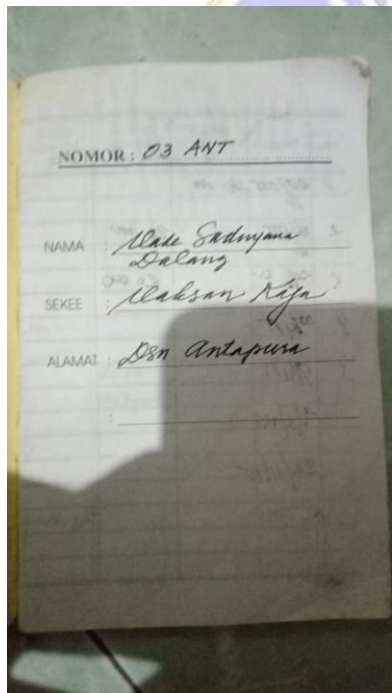 NOMOR : 03 ANT
NAMA : Made Sadunyana
Dalang
SEKEE : Maksan Raja
ALAMAT : Dsn Antapura
: